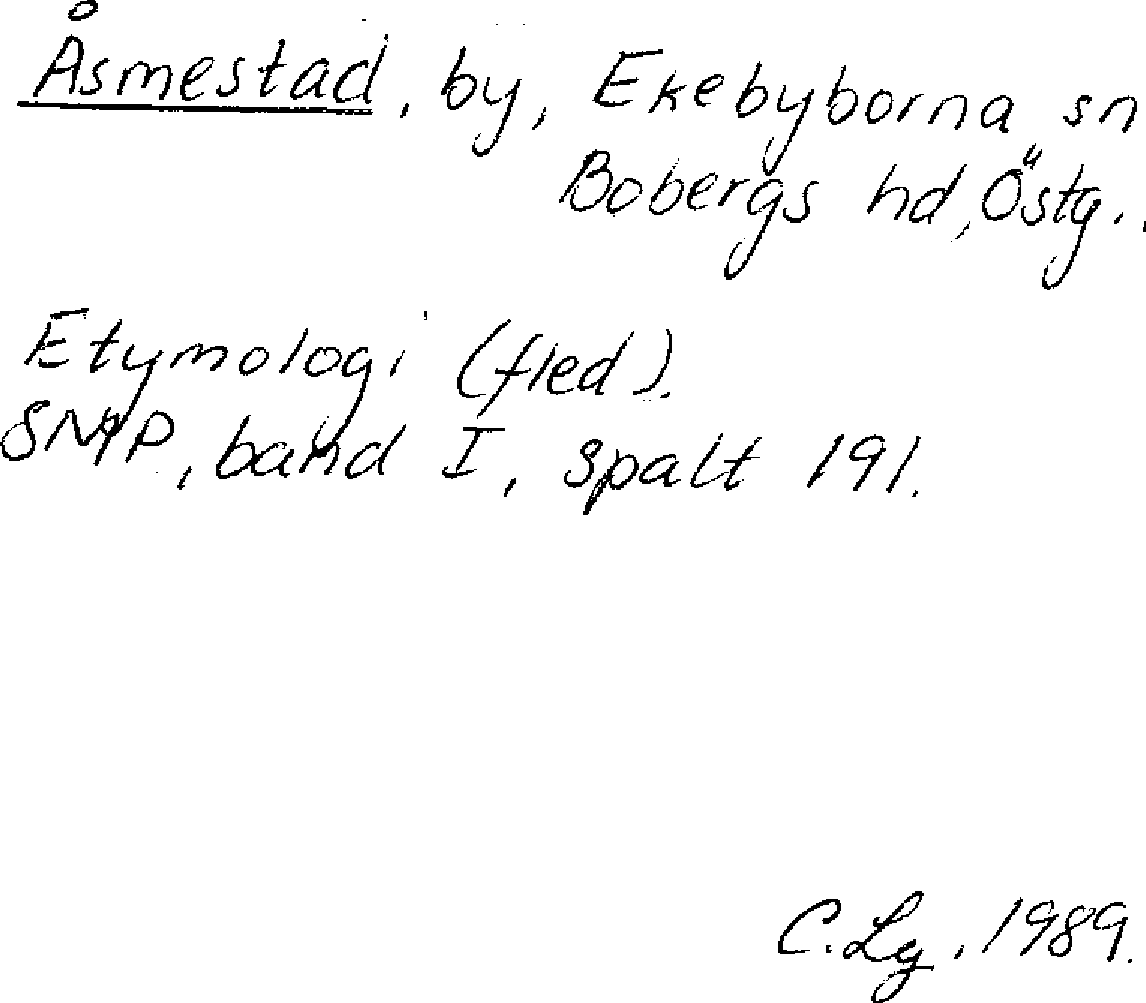 Åsmestad, by, Ekebyborna sn
Bobergs hd, Östg..
Etymologi (fled).
SMP, band I, spalt 191.
C. Lg, 1989.